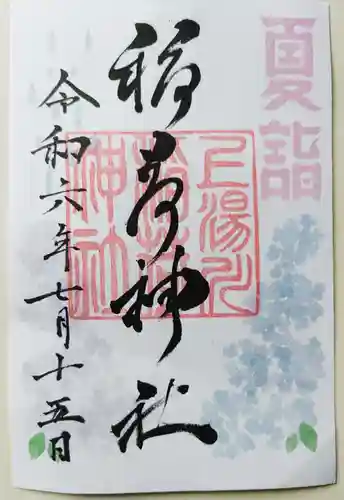 夏詣
上湯川
稲荷
神社
稲荷神社
令和六年七月十五日